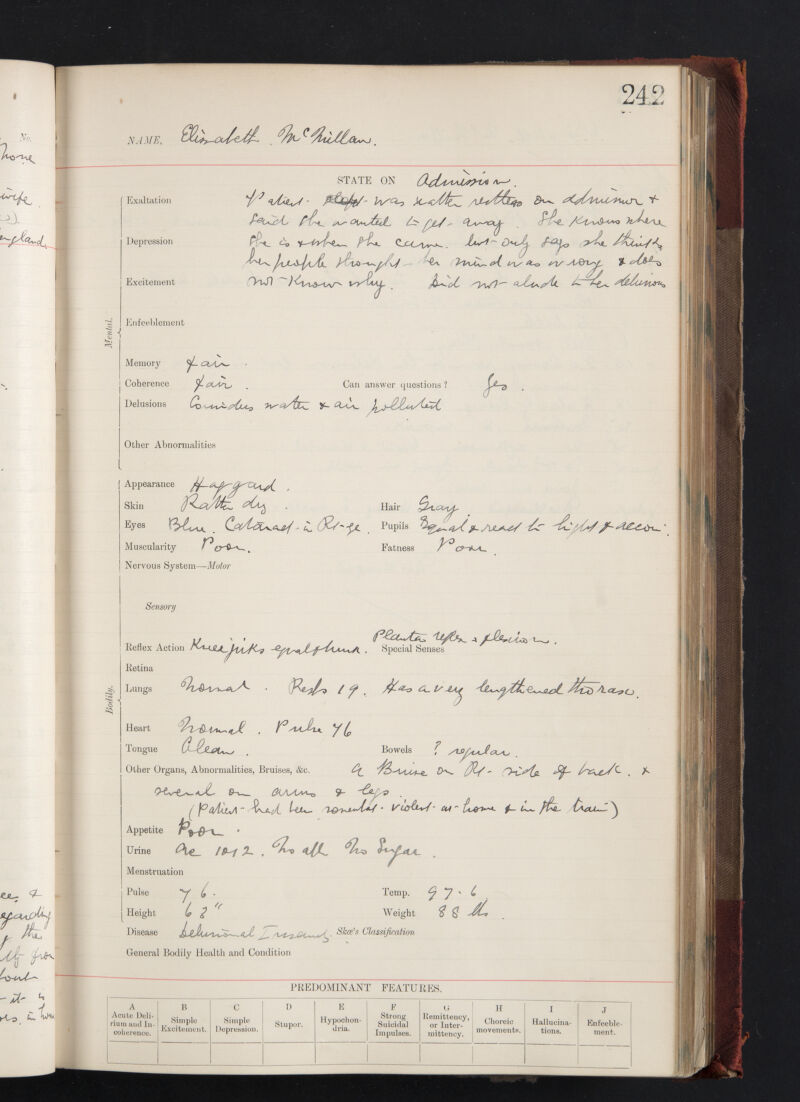 242
No.
none
wife
England
NAME, Elizabeth McMillan.
STATE ON Admission.
Exaltation Patient was rather restless on admission &
said she wanted to get away. She knows where
Depression she is & when she came. but only says she thinks
her people thought her mind was wrong & does
Excitement not know why. Did not alude to her delusions
Mental.
Enfeeblement
Memory Fair.
Coherence Fair. Can answer questions? Yes.
Delusions Considers water & air polluted
Other Abnormalities
Appearance Haggard.
Skin Rather dry. Hair Gray.
Eyes Blue. Cataract in Rt. eye. Pupils Equal & react to light & accom.
Muscularity Poor. Fatness Poor.
Nervous System—Motor
Sensory
Plantar reflex flexion.
Reflex Action Knee jirks equal Special Senses
Retina
Bodily.
Lungs Normal. Resps 19. Has a very lengthened thorax.
Heart Normal. Pulse 76
Tongue Clean. Bowels ? regular.
Other Organs, Abnormalities, Bruises, &c. A Bruise on Rt. side of back. &
several on arms & legs.
(Patient had been somewhat violent at home & in the train)
Appetite Poor.
Urine Ac 1012. No alb No Sugar.
Menstruation
Pulse 76. Temp. 97.6
Height 63" Weight 88 lbs.
Disease Delusional Insanity. Skae's Classification
General Bodily Health and Condition
PREDOMINANT FEATURES.
A B C D E F G H I J
Acute Delirium and Incoherence. Simple Excitement. Simple Depression. Stupor. Hypochondria. Strong Suicidal Impulses. Remittency, or Intermittency. Choreic movements. Hallucinations. Enfeeblement.